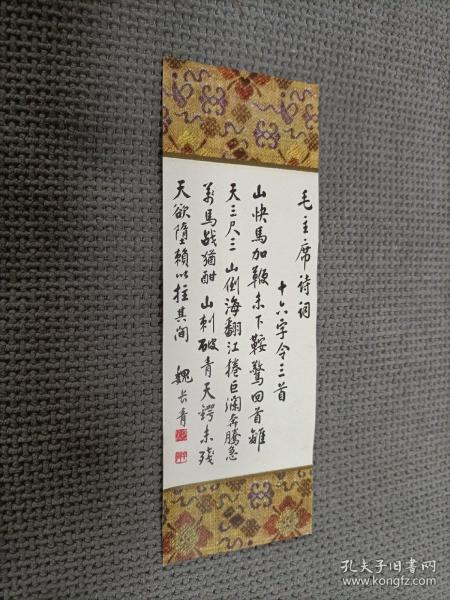 毛主席诗词
十六字令三首
山快馬加鞭未下鞍驚回首離
天三尺三 山倒海翻江捲巨澜奔騰急
萬馬战猶酣 山刺破青天锷未残
天欲墮賴以拄其间 魏长青
孔夫子旧书网
www.kongfz.com